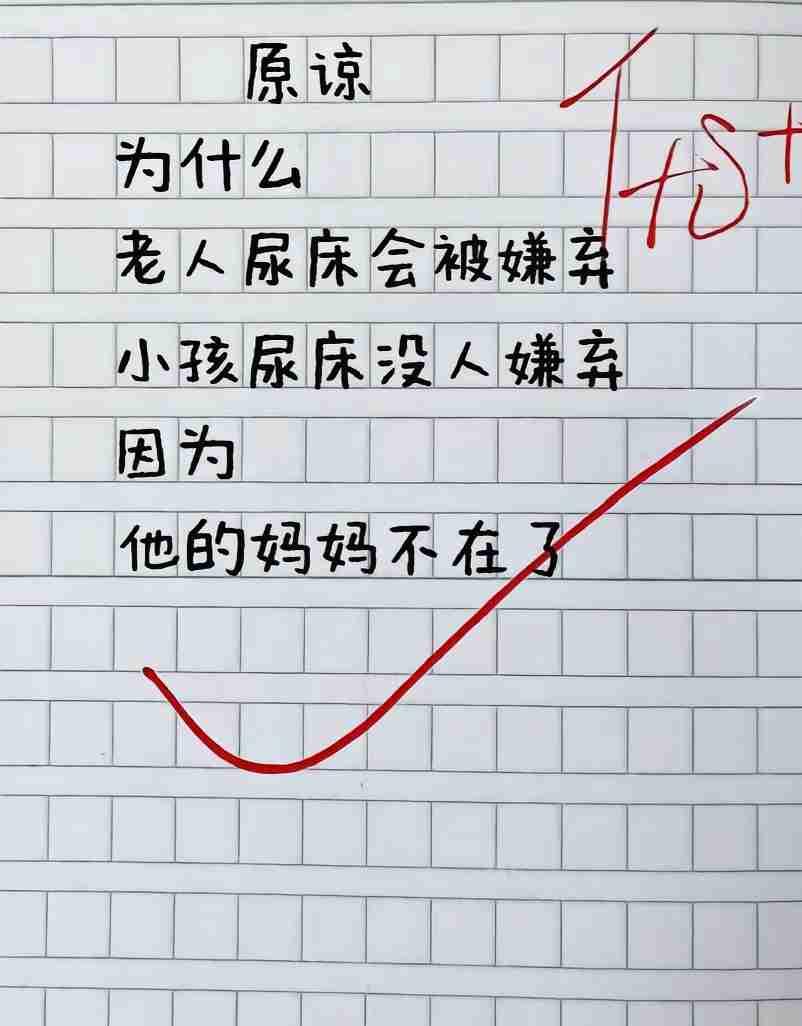 原谅
为什么
老人尿床会被嫌弃
小孩尿床没人嫌弃
因为
他的妈妈不在了